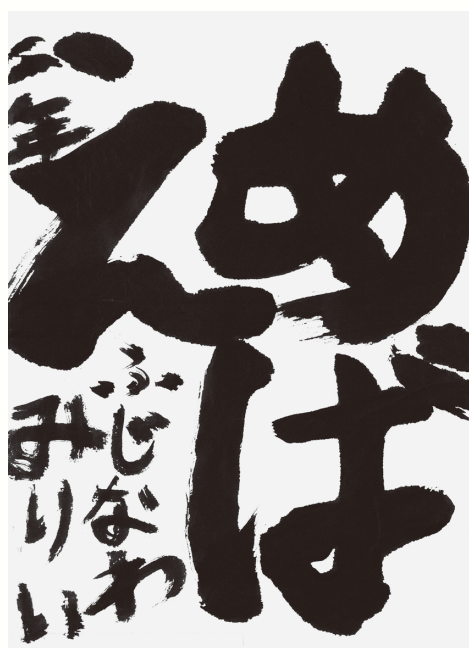 めば
え
年
ふじなわ
みりい